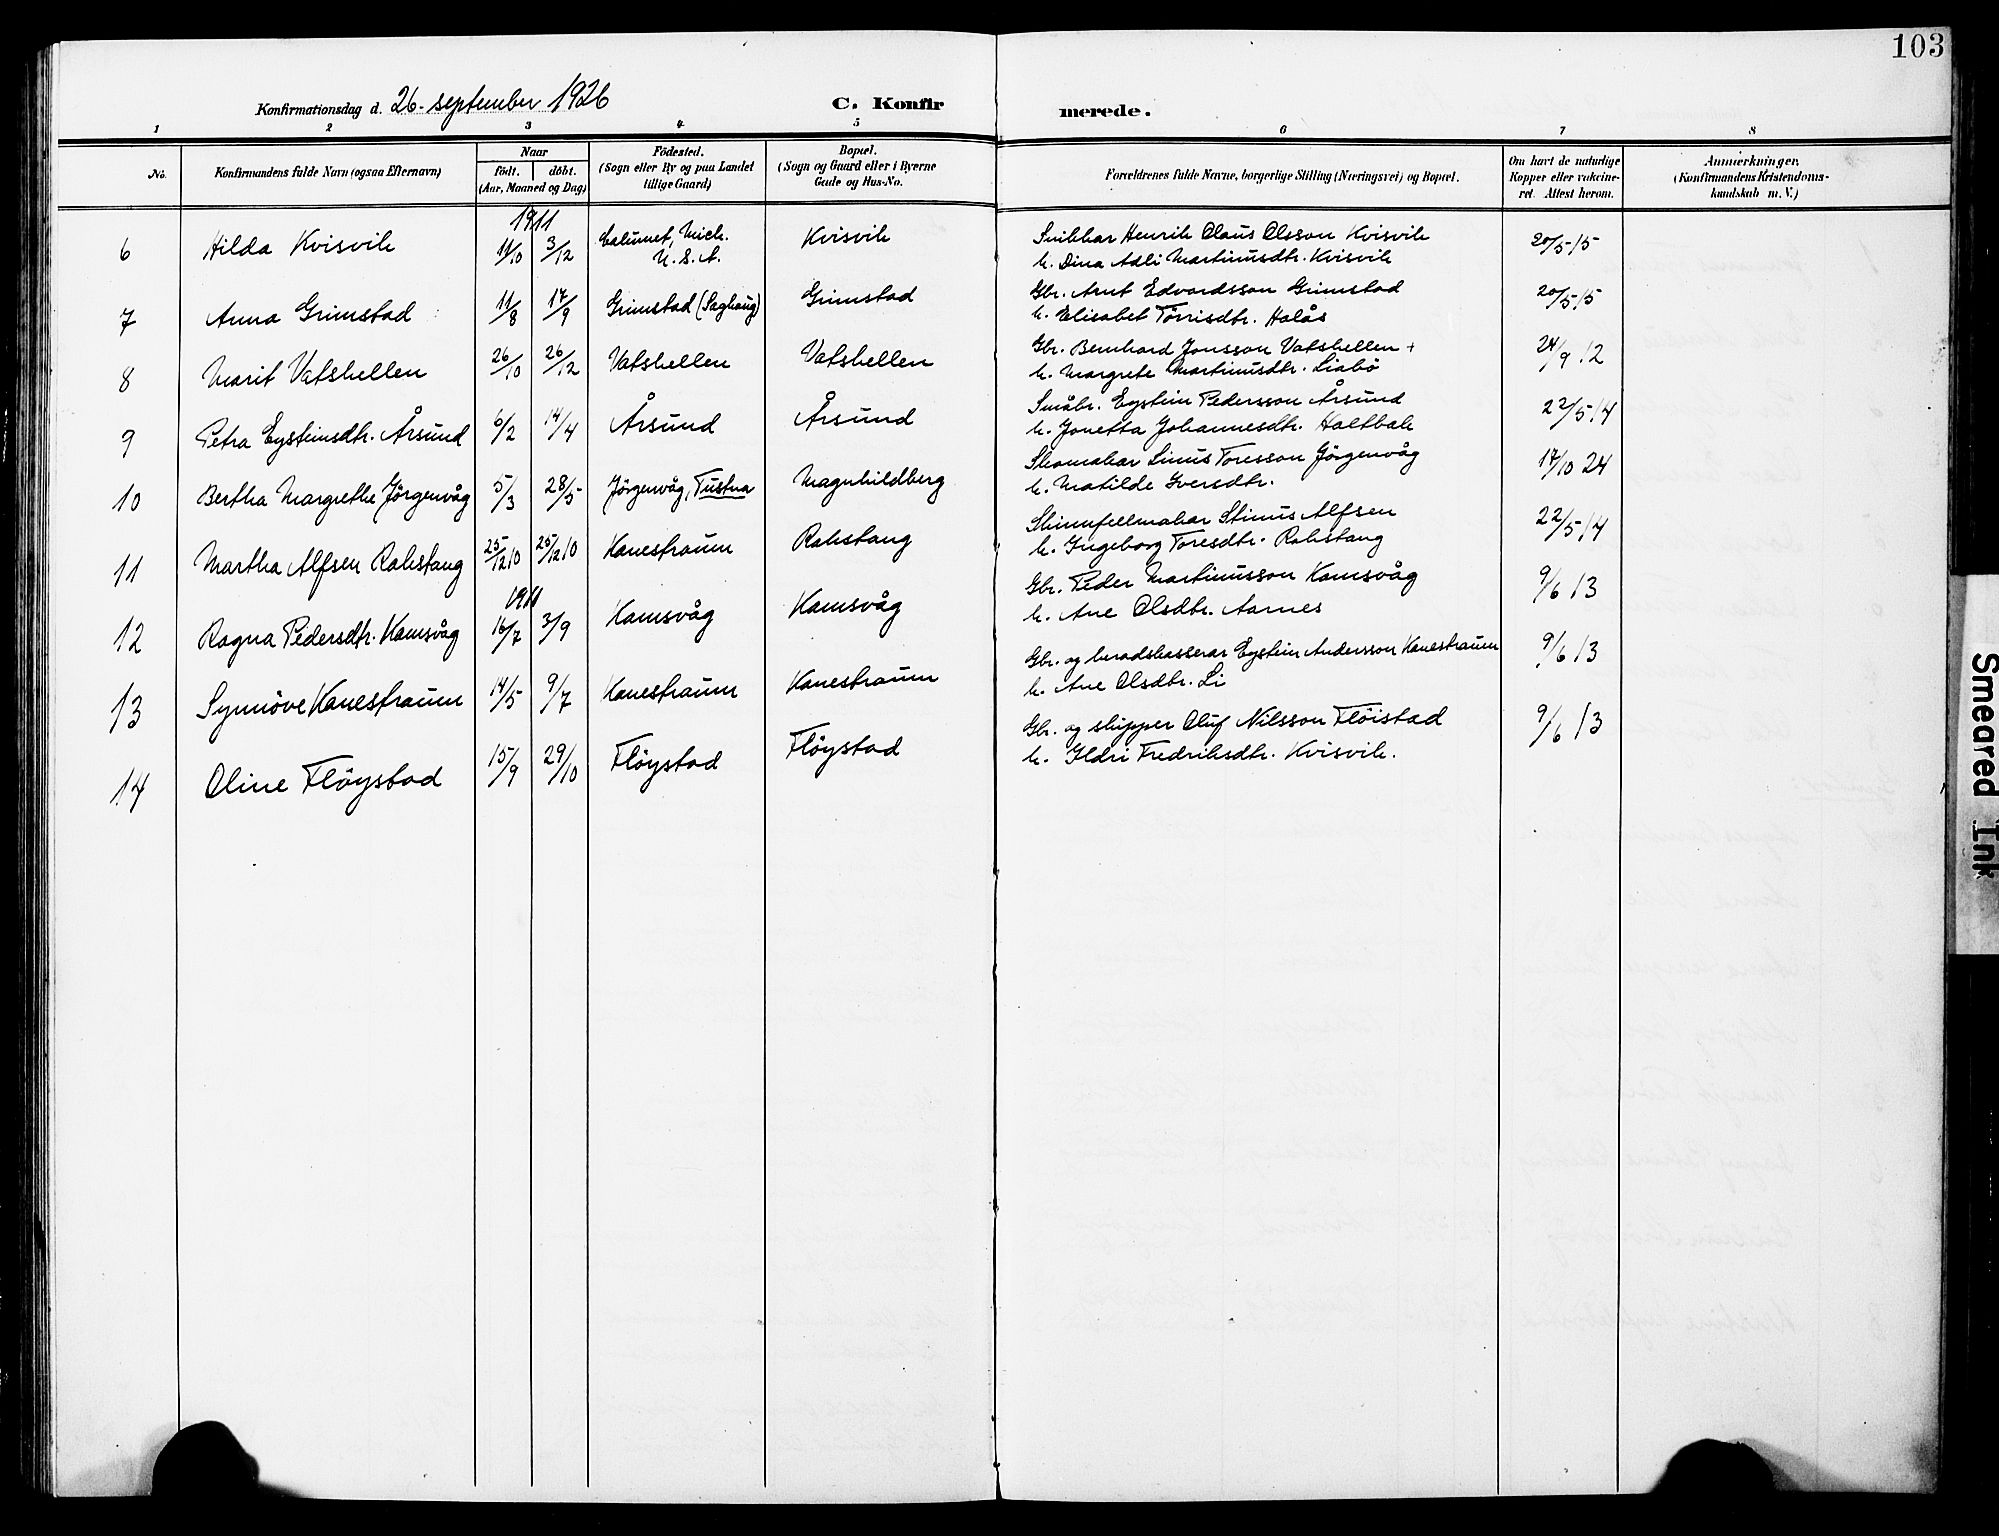 103
Konfirmationsdag d. 26. september 1926 C. Konfirmerede.
1 2 3 4 5 6 7 8
No. Konfirmandens fulde Navn (ogsaa Efternavn) Naar födt. döbt. (Aar, Maaned og Dag) Födested. (Sogn eller By og paa Landet tillige Gaard) Bopæl. (Sogn og Gaard eller i Byerne Gade og Hus-No. Forældrenes fulde Navne, borgerlige Stilling (Næringsvei) og Bopæl. Om havt de naturlige Kopper eller vakcineret. Attest herom. Anmerkninger. (Konfirmandens Kristendomskundskab m. V.)
1911
6 Hilda Kvisvik 11/10 3/12 Calumet, Mich. U.S.A. Kvisvik Snikkar Henrik Claus Olsson Kvisvik 20/5 15
k. Dina Adli Martinusdtr. Kvisvik
7 Anna Grimstad 11/8 17/9 Grimstad (Saghaug) Grimstad Gbr. Arnt Edvardsson Grimstad 20/5 15
k. Elisabet Törrisdtr. Halås
8 Marit Vatshellen 26/10 26/12 Vatshellen Vatshellen Gbr. Bernhard Jonsson Vatshellen + 24/9 12
k. Margrete Martinusdtr. Liabö
9 Petra Eysteinsdtr. Årsund 6/2 14/4 Årsund Årsund Småbr. Eystein Pedersson Årsund 22/5 14
k. Jonetta Johannesdtr. Holtbak
10 Bertha Margrethe Jörgenvåg 5/3 28/5 Jörgenvåg, Tustna Magnhildberg Skomakar Linus Toresson Jörgenvåg 17/10 24
k. Matilde Iversdtr.
11 Martha Alfsen Rakstang 25/12 10 25/12 10 Kanestraum Rakstang Skinnfellmakar Stinus Alfsen 22/5 14
k. Ingeborg Toresdtr. Rakstang
1911
12 Ragna Pedersdtr. Kamsvåg 16/7 3/9 Kamsvåg Kamsvåg Gbr. Peder Martinusson Kamsvåg 9/6 13
k. Ane Olsdtr. Aarnes
13 Synnöve Kanestraum 14/5 9/7 Kanestraum Kanestraum Gbr. og heradskasserar Eystein Andersson Kanestraum 9/6 13
k. Ane Olsdtr. Li
14 Oline Flöystad 15/9 29/10 Flöystad Flöystad Gbr. og skipper Oluf Nilsson Flöistad 9/6 13
k. Ildri Fredriksdtr. Kvisvik.
Smeared Ink